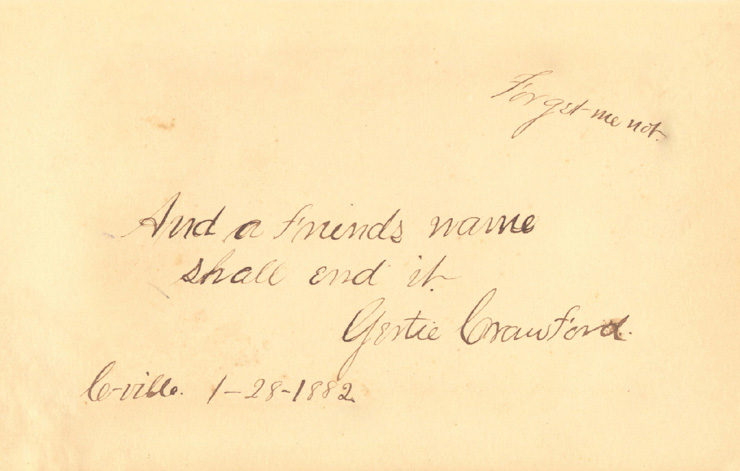 Forget-me not.
And a friends name
shall end it.
Gertie Crawford.
C-ville. 1-28-1882